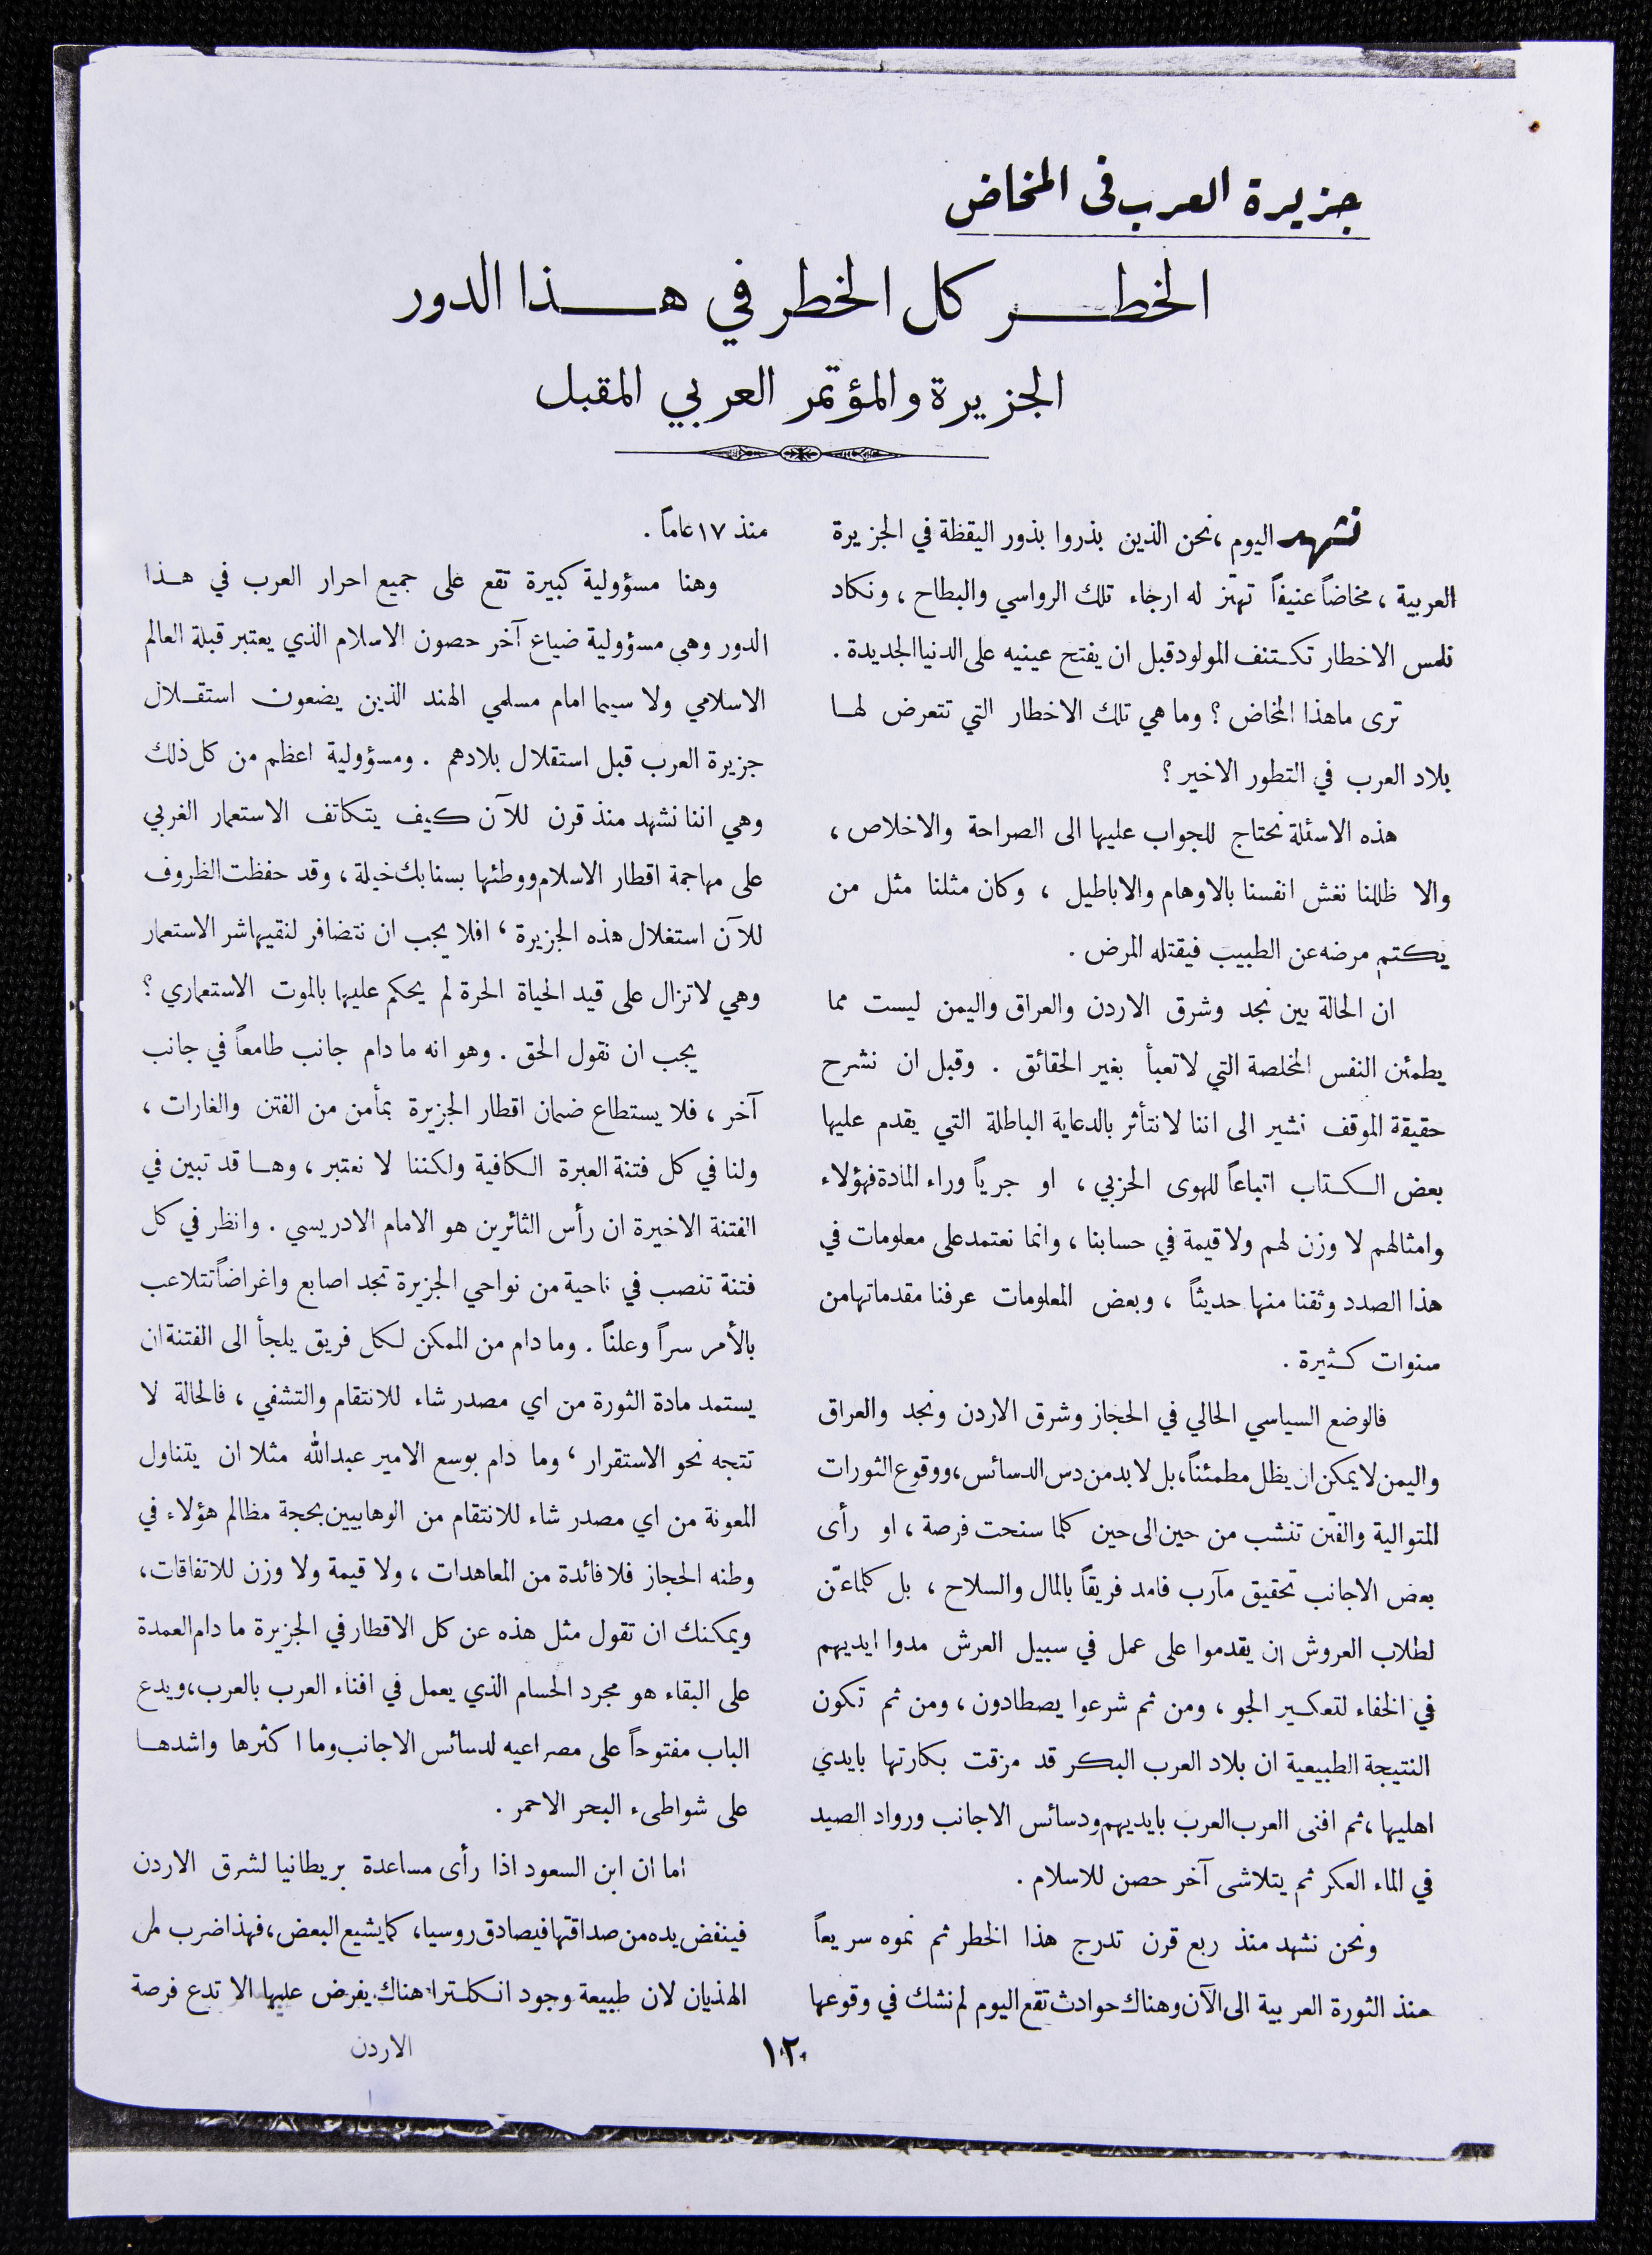 جزيرة العرب في المخاض
الخطر كل الخطر في هذا الدور
الجزيرة والمؤتمر العربي المقبل
نشهد اليوم ، نحن الذين بذروا بذور اليقظة في الجزيرة
العربية ، مخاضاً عنيفاً تهتز له ارجاء تلك الرواسي والبطاح ، ونكاد
نلمس الاخطار تكتنف المولود قبل ان يفتح عينيه على الدنيا الجديدة .
ترى ماهذا المخاض ؟ وما هي تلك الاخطار التي تتعرض لها
بلاد العرب في التطور الاخير ؟
هذه الاسئلة نحتاج للجواب عليها الى الصراحة والاخلاص ،
والا ظللنا نغش انفسنا بالاوهام والاباطيل ، وكان مثلنا مثل من
يكتم مرضه عن الطبيب فيقتله المرض .
ان الحالة بين نجد وشرق الاردن والعراق واليمن ليست مما
يطمئن النفس المخلصة التي لا تعبأ بغير الحقائق . وقبل ان نشرح
حقيقة الموقف نشير الى اننا لا نتأثر بالدعاية الباطلة التي يقدم عليها
بعض الكتاب اتباعاً للهوى الحزبي ، او جرياً وراء المادة فهؤلاء
وامثالهم لا وزن لهم ولا قيمة في حسابنا ، وانما نعتمد على معلومات في
هذا الصدد وثقنا منها حديثاً ، وبعض المعلومات عرفنا مقدماتها من
سنوات كثيرة .
فالوضع السياسي الحالي في الحجاز وشرق الاردن ونجد والعراق
واليمن لا يمكن ان يظل مطمئناً، بل لابد من دس الدسائس، ووقوع الثورات
المتوالية والفتن تنشب من حين الى حين كلما سنحت فرصة ، او رأى
بعض الاجانب تحقيق مآرب فامد فريقاً بالمال والسلاح ، بل كلما عنّ
لطلاب العروش ان يقدموا على عمل في سبيل العرش مدوا ايديهم
في الخفاء لتعكير الجو ، ومن ثم شرعوا يصطادون ، ومن ثم تكون
النتيجة الطبيعية ان بلاد العرب البكر قد مزقت بكارتها بايدي
اهليها ، ثم افنى العرب العرب بايديهم ودسائس الاجانب ورواد الصيد
في الماء العكر ثم يتلاشى آخر حصن للاسلام .
ونحن نشهد منذ ربع قرن تدرج هذا الخطر ثم نموه سريعاً
منذ الثورة العربية الى الآن وهناك حوادث تقع اليوم لم نشك في وقوعها
منذ ١٧ عاماً .
وهنا مسؤولية كبيرة تقع على جميع احرار العرب في هذا
الدور وهي مسؤولية ضياع آخر حصون الاسلام الذي يعتبر قبلة العالم
الاسلامي ولا سيما امام مسلمي الهند الذين يضعون استقلال
جزيرة العرب قبل استقلال بلادهم . ومسؤولية اعظم من كل ذلك
وهي اننا نشهد منذ قرن للآن كيف يتكاتف الاستعمار الغربي
على مهاجمة اقطار الاسلام ووطئها بسنابك خيله ، وقد حفظت الظروف
للآن استغلال هذه الجزيرة ، افلا يجب ان نتضافر لنقيها شر الاستعمار
وهي لا تزال على قيد الحياة الحرة لم يحكم عليها بالموت الاستعماري ؟
يجب ان نقول الحق . وهو انه ما دام جانب طامعاً في جانب
آخر ، فلا يستطاع ضمان اقطار الجزيرة بمأمن من الفتن والغارات ،
ولنا في كل فتنة العبرة الكافية ولكننا لا نعتبر ، وها قد تبين في
الفتنة الاخيرة ان رأس الثائرين هو الامام الادريسي . وانظر في كل
فتنة تنصب في ناحية من نواحي الجزيرة تجد اصابع واغراضاً تتلاعب
بالأمر سراً وعلناً . وما دام من الممكن لكل فريق يلجأ الى الفتنة ان
يستمد مادة الثورة من اي مصدر شاء للانتقام والتشفي ، فالحالة لا
تتجه نحو الاستقرار ، وما دام بوسع الامير عبدالله مثلا ان يتناول
المعونة من اي مصدر شاء للانتقام من الوهابيين بحجة مظالم هؤلاء في
وطنه الحجاز فلا فائدة من المعاهدات ، ولا قيمة ولا وزن للاتفاقات ،
ويمكنك ان تقول مثل هذه عن كل الاقطار في الجزيرة ما دام العمدة
على البقاء هو مجرد الحسام الذي يعمل في افناء العرب بالعرب، ويدع
الباب مفتوحاً على مصراعيه لدسائس الاجانب وما اكثرها واشدها
على شواطىء البحر الاحمر .
اما ان ابن السعود اذا رأى مساعدة بريطانيا لشرق الاردن
فينفض يده من صداقتها فيصادق روسيا، كما يشيع البعض، فهذا ضرب من
الهذيان لان طبيعة وجود انكلترا هناك يفرض عليها الا تدع فرصة
١٢٠
الاردن